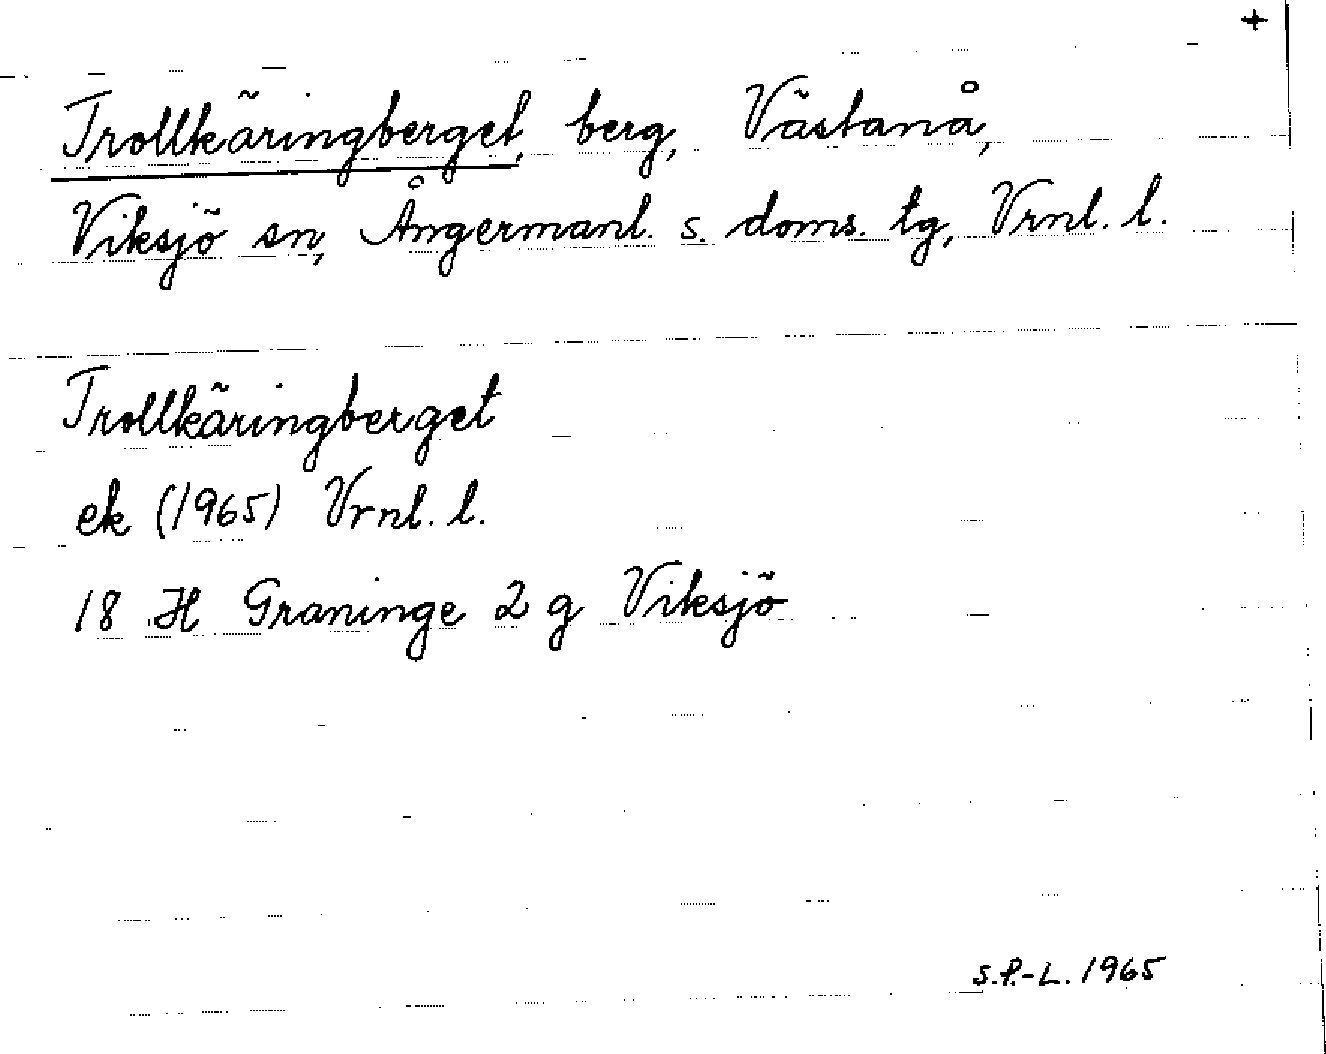 +
Trollkäringberget, berg, Västanå,
Viksjö sn, Ångermanl. s. doms. tg, Vrnl. l.
Trollkäringberget
ek (1965) Vrnl. l.
18 H Graninge 2 g Viksjö
S.P.-L. 1965